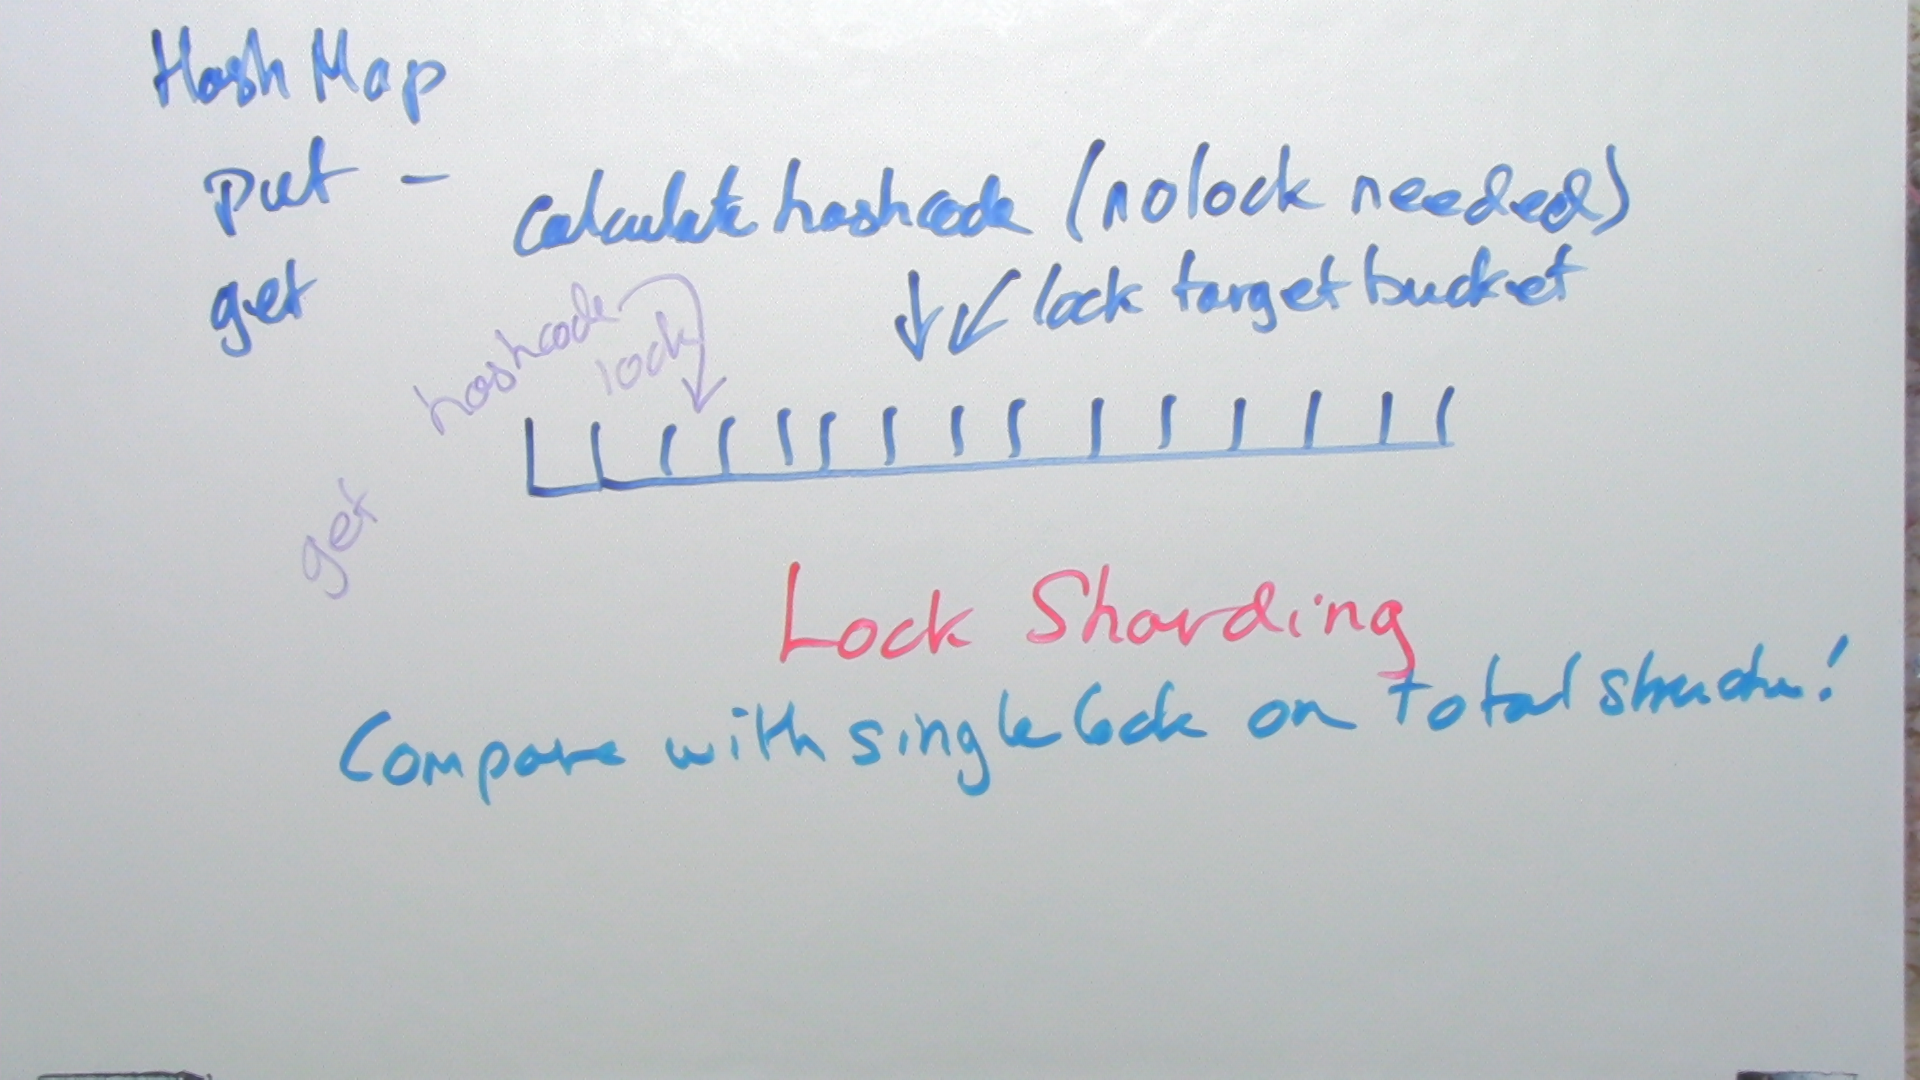 Hash Map
put - calculate hashcode (no lock needed)
get
lock target bucket
hashcode
lock
get
Lock Sharding
Compare with single lock on total structure!